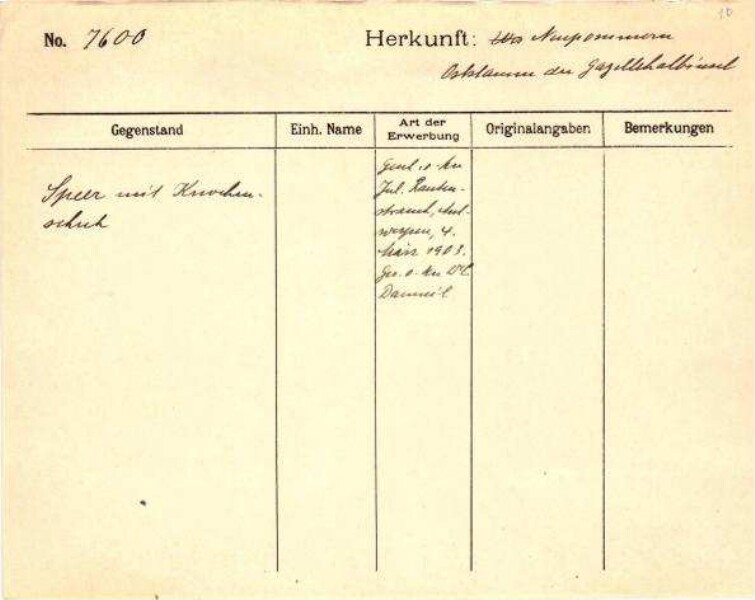 10
No. 7600 Herkunft: Neupommern
Oststamm der Gazellehalbinsel
Gegenstand Einh. Name Art der Erwerbung Originalangaben Bemerkungen
Speer mit Knochen-
schuh
Jul. Rauten-
strauch, Ant-
werpen, 4.
März 1903.
Ges. v. Hn
Dammeil